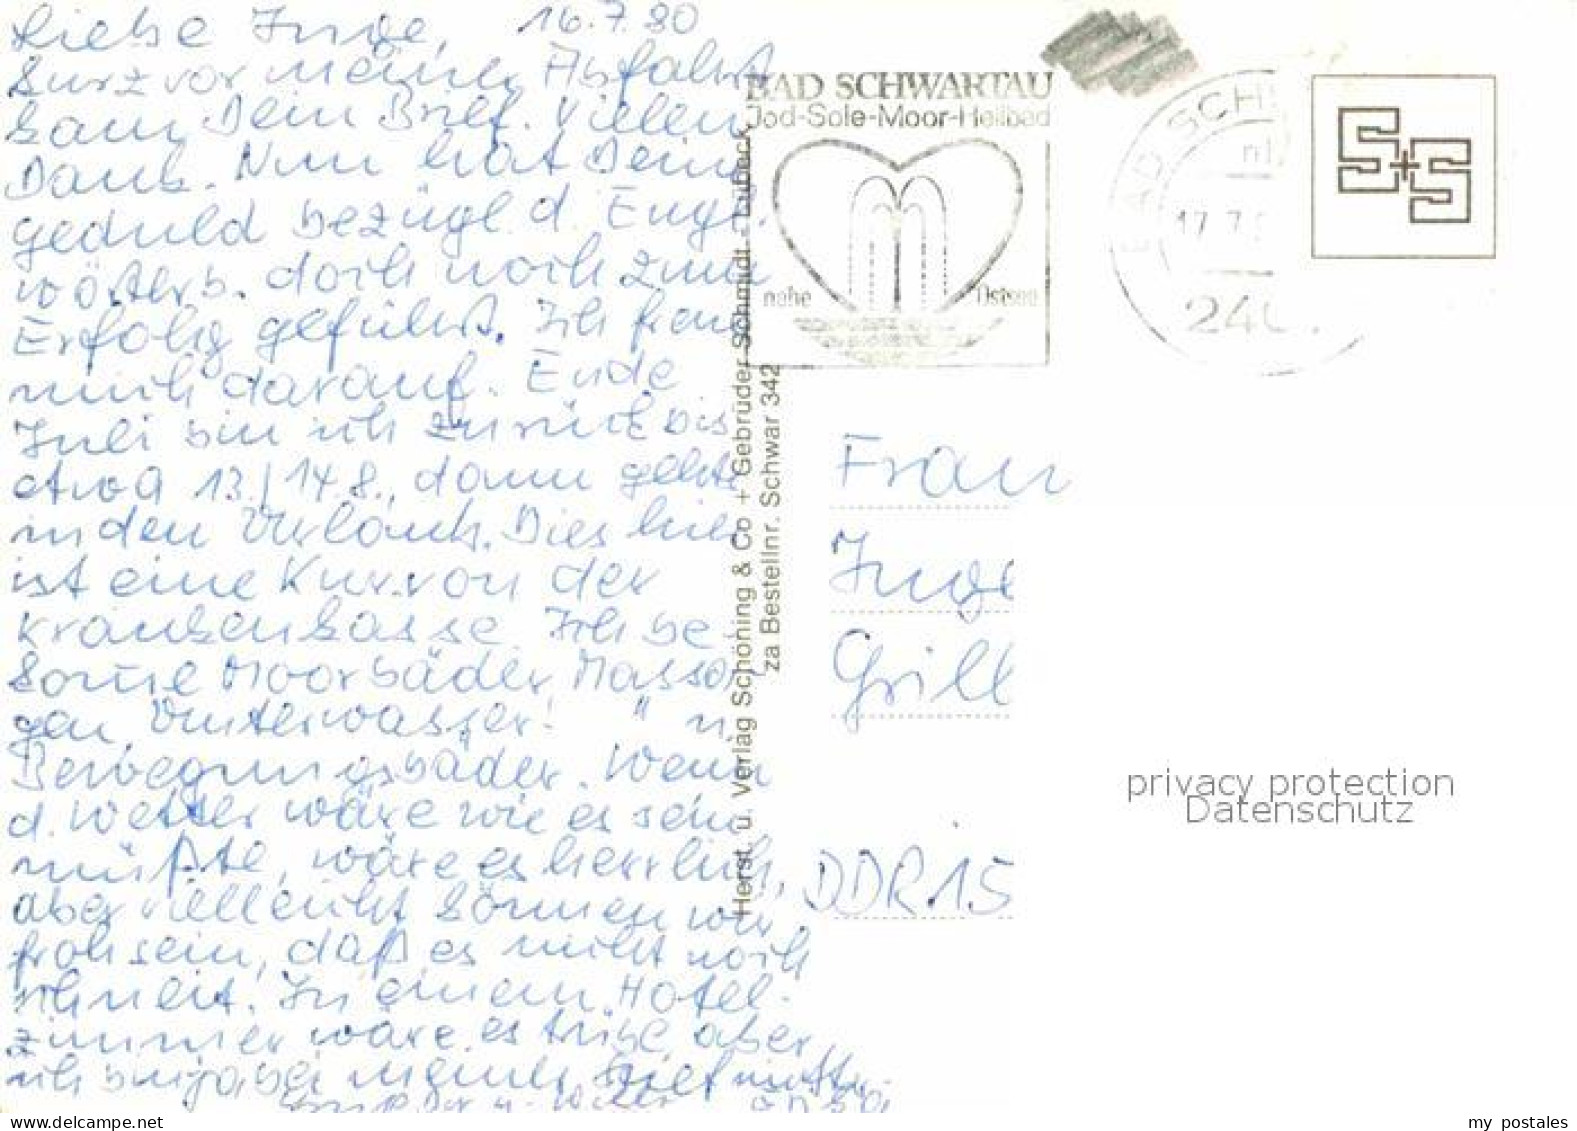 Liebe Inge, 16.7.80
kurz vor meiner Abfahrt
kam Dein Brief. Vielen
Dank. Nun hat Deine
geduld bezügl. d. Engl.
wörterb. doch noch zum
Erfolg geführt. Ich freu
mich darauf. Ende
Juli bin ich zurück bis
etwa 13./14.8., dann gehts
in den Urlaub. Dies hier
ist eine Kur von der
Krankenkasse. Ich be
komme Moorbäder, Massa
gen, Unterwasser- " u.
Bewegungsbäder. Wenn
d. Wetter wäre wie es sein
müßte, wäre es herrlich,
aber vielleicht können wir
froh sein, daß es nicht noch
schneit. In einem Hotel-
zimmer wäre es trübe, aber
ich bin ja bei meiner
BAD SCHWARTAU
Jod-Sole-Moor-Heilbad
nahe Ostsee
BAD SCH
17.7.
240
S+S
Herst. u. Verlag Schöning & Co + Gebrüder Schmidt - Lübeck
za Bestellnr. Schwar 342
Frau
Inge
Grill
DDR 15
privacy protection
Datenschutz
my postales